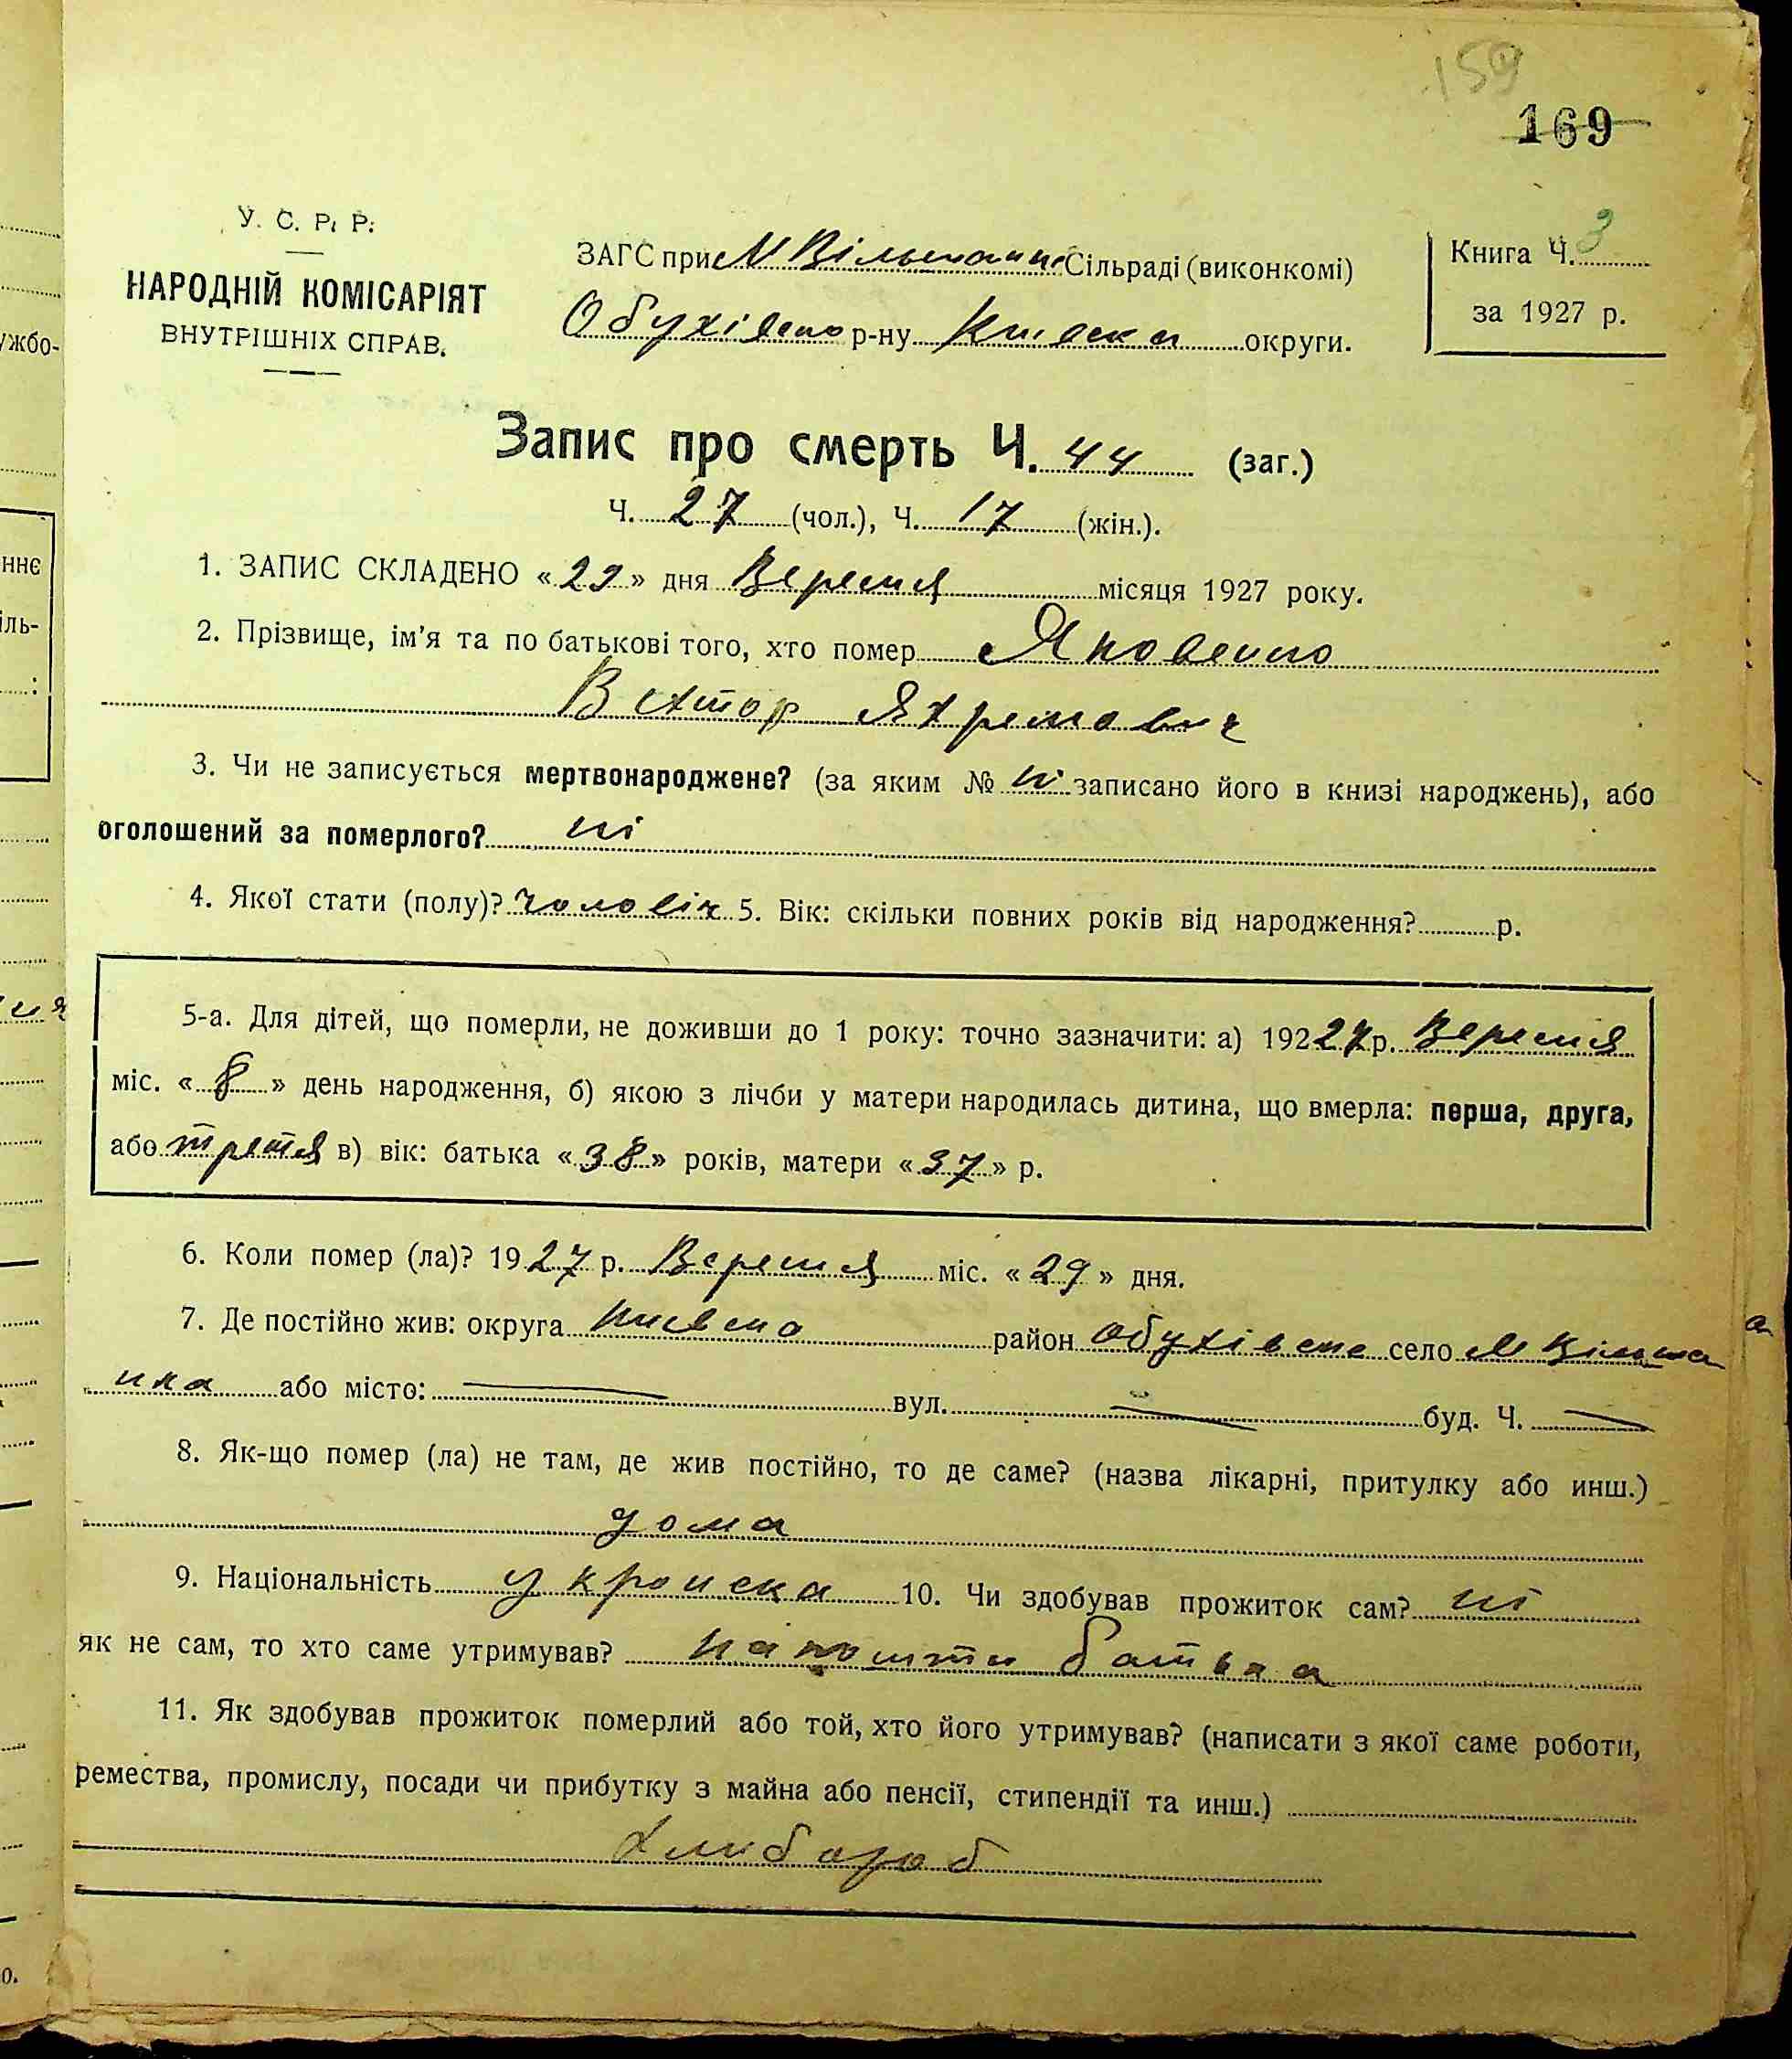 159
169
У. С. Р. Р.
НАРОДНІЙ КОМІСАРІЯТ
ВНУТРІШНІХ СПРАВ.
ЗАГС при М Вільшанці Сільраді (виконкомі)
Обухівсько р-ну Київськи округи.
Книга Ч. 3
за 1927 р.
Запис про смерть Ч. 44 (заг.)
Ч. 27 (чол.), Ч. 17 (жін.).
1. ЗАПИС СКЛАДЕНО «29» дня Вересня місяця 1927 року.
2. Прізвище, ім'я та по батькові того, хто помер Яковенко
Віктор Яхремович
3. Чи не записується мертвонароджене? (за яким № ні записано його в книзі народжень), або
оголошений за померлого? ні
4. Якої стати (полу)? чоловіч 5. Вік: скільки повних років від народження? р.
5-а. Для дітей, що померли, не доживши до 1 року: точно зазначити: а) 19227 р. Вересня
міс. «8» день народження, б) якою з лічби у матери народилась дитина, що вмерла: перша, друга,
або третя в) вік: батька «38» років, матери «37» р.
6. Коли помер (ла)? 1927 р. Вересня міс. «29» дня.
7. Де постійно жив: округа Київсько район Обухівське село М Вільша
нка або місто: вул. буд. Ч.
8. Як-що помер (ла) не там, де жив постійно, то де саме? (назва лікарні, притулку або инш.)
дома
9. Національність украиска 10. Чи здобував прожиток сам? ні
як не сам, то хто саме утримував? на кошти батька
11. Як здобував прожиток померлий або той, хто його утримував? (написати з якої саме роботи,
ремества, промислу, посади чи прибутку з майна або пенсії, стипендії та инш.)
Хлибороб